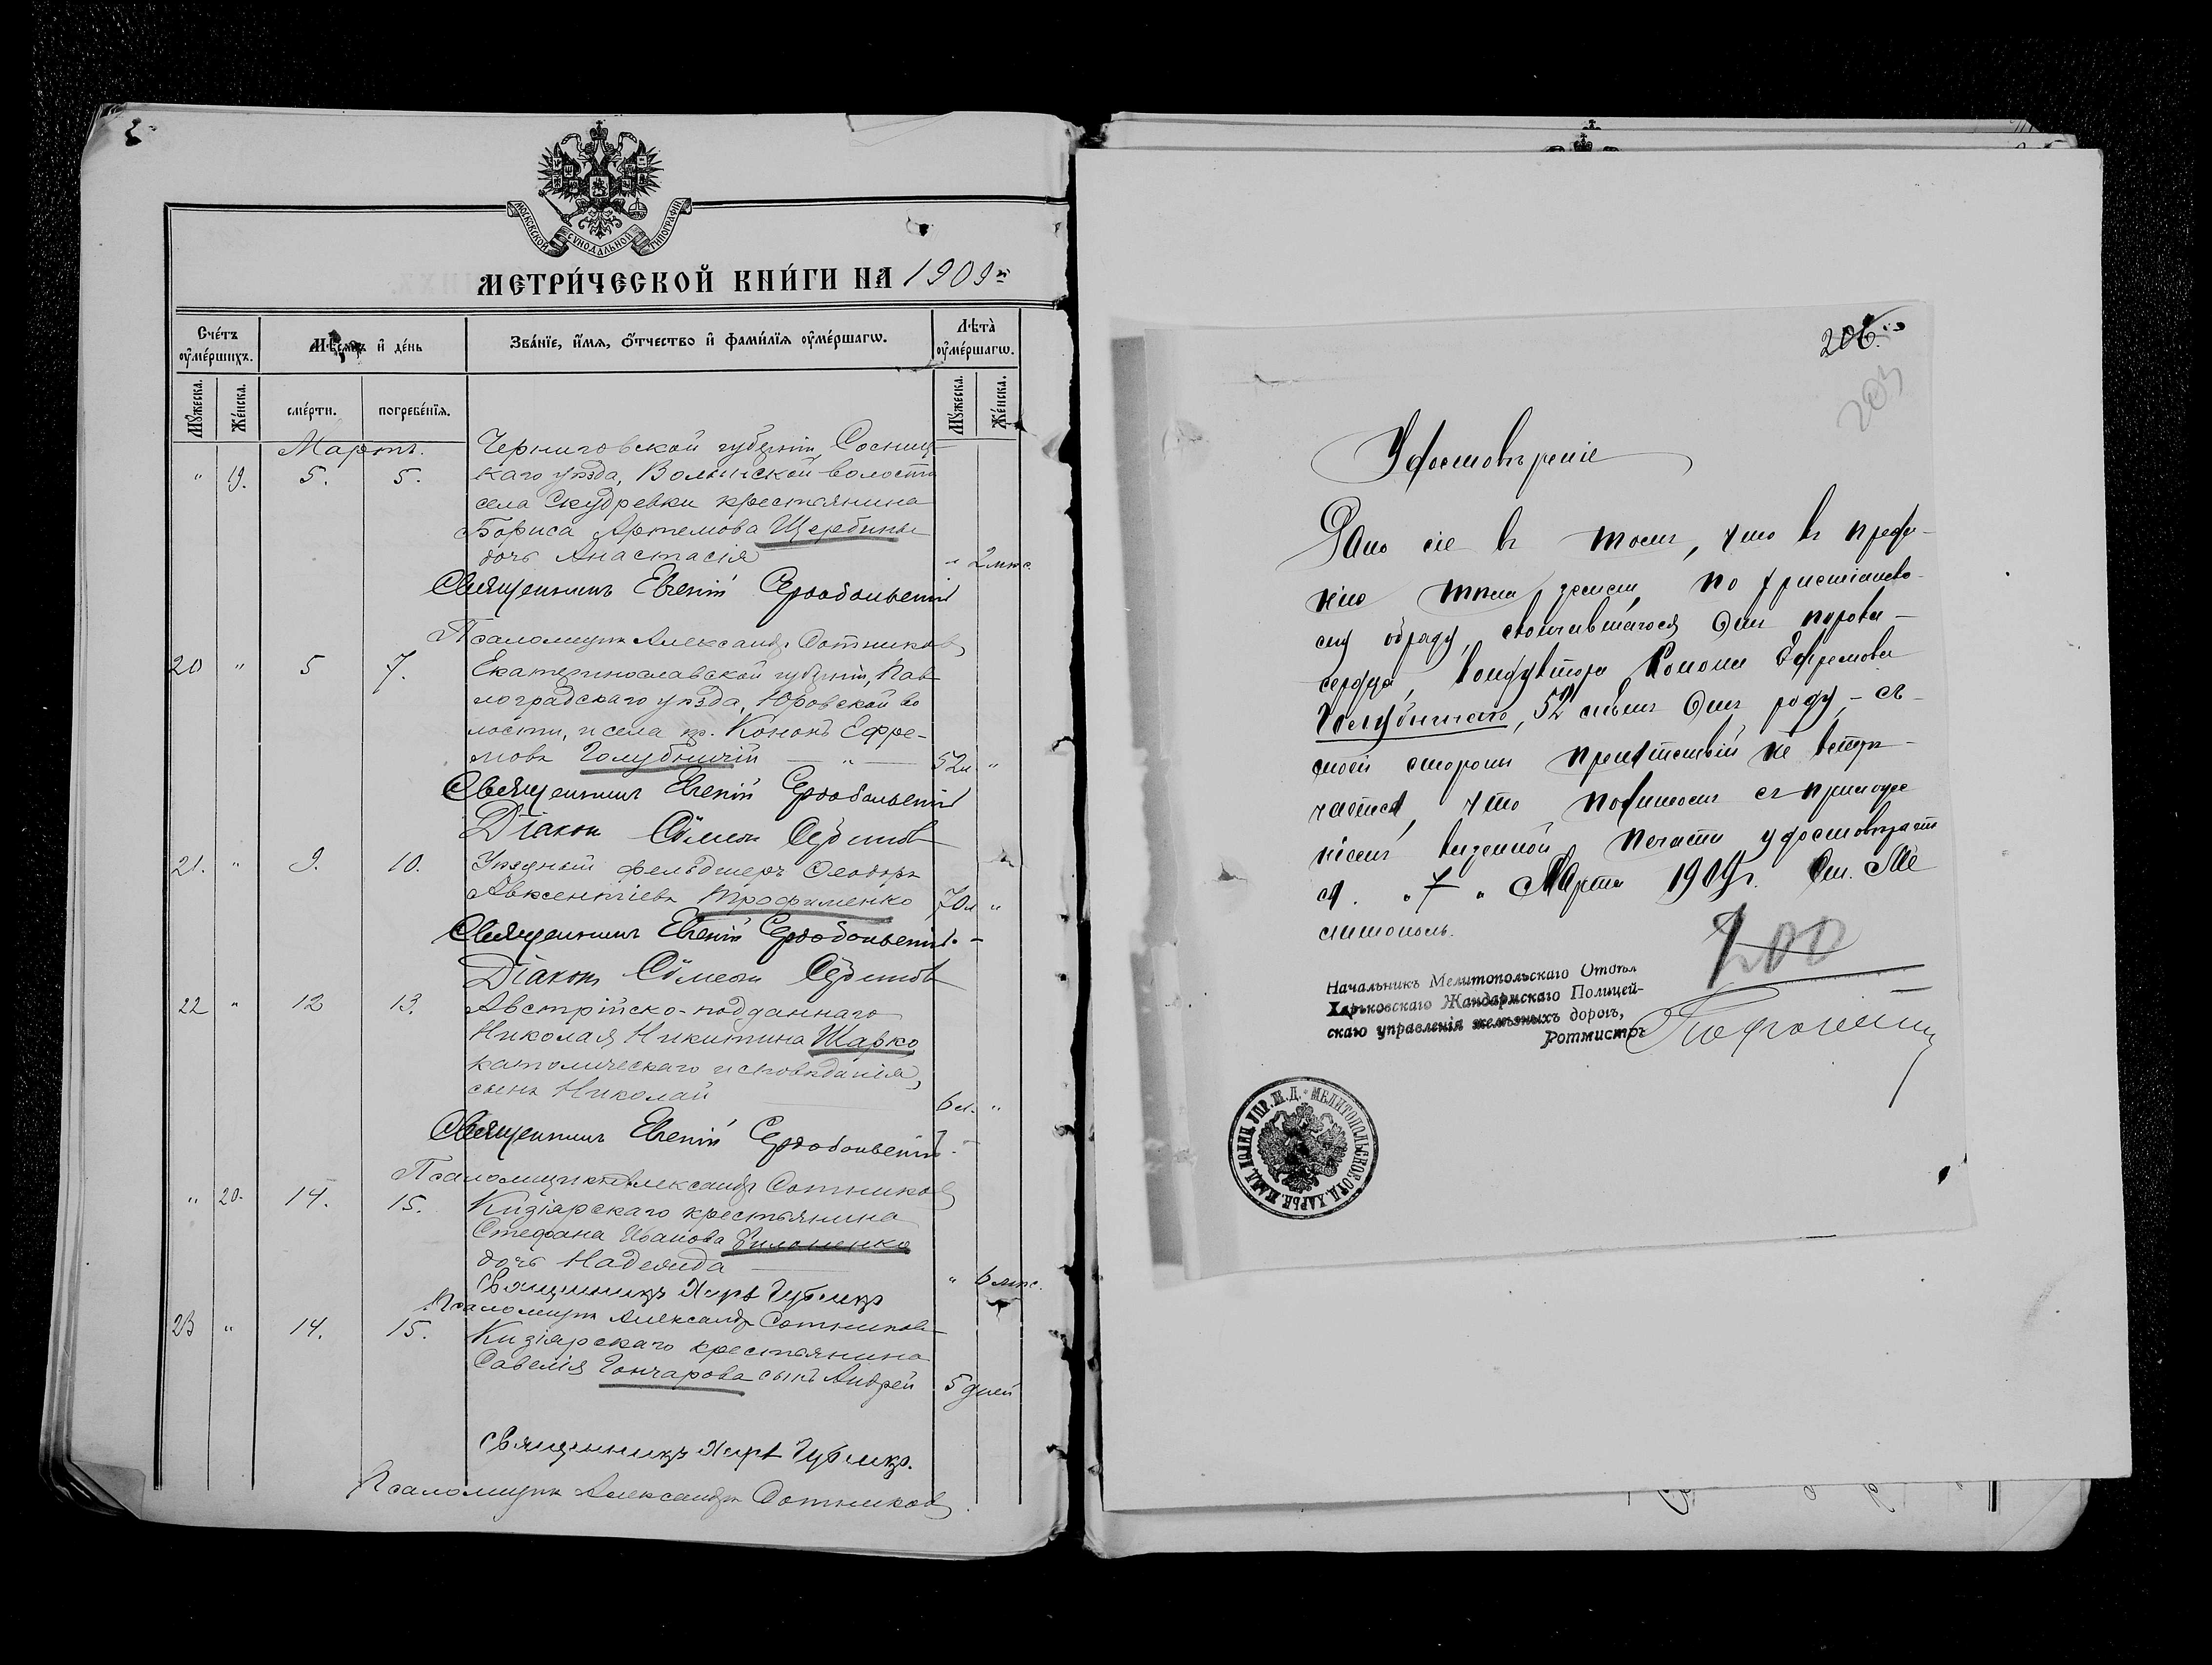 МОСКОВСКОЙ СѴНОДАЛЬНОЙ ТИПОГРАФІИ
МЕТРИ́ЧЕСКОЙ КНИ́ГИ НА 1909 й
Сче́тъ ᲂу҆ме́ршихъ.
Мѣ́сяцъ и҆ де́нь
Зва́нїе, и҆́мя, ѻ҆́тчество и҆ фами́лїя ᲂу҆ме́ршагѡ.
Лѣта̀ ᲂу҆ме́ршагѡ.
Мꙋ́жеска.
Же́нска.
сме́рти.
погребе́нїя.
Мꙋ́жеска.
Же́нска.
Мартъ.
Черниговской губерніи, Сосниц-
" 19. 5. 5. каго уѣзда, Волынской волости
села Скудревки крестьянина
Бориса Артемова Щербины
дочь Анастасія " 2 мѣс.
Священникъ Евгеній
Псаломщикъ Александръ Сотниковъ
20 " 5 7. Екатеринославской губерніи, Пав-
лоградскаго уѣзда, Юровской во
лости, и села кр. Кононъ Ефре-
мовъ Голубничій — " — 52 л "
Священникъ Евгеній
Діаконъ Сѵмеон
21. " 9. 10. Уѣздный фельдшеръ Ѳеодоръ
Авксентіевъ Трофименко 70 л "
Священникъ Евгеній
Діаконъ Сѵмеон
22 " 12 13. Австрійско-подданнаго
Николая Никитина Шарко
католическаго исповѣданія,
сынъ Николай 6 л. "
Священникъ Евгеній
Псаломщикъ Александръ Сотниковъ
" 20. 14. 15. Кизіярскаго крестьянина
Стефана Иванова Филоненко
дочь Надежда " 6 мѣс.
Священникъ
Псаломщикъ Александръ Сотниковъ
23 " 14. 15. Кизіярскаго крестьянина
Савелія Гончарова сынъ Андрей 5 дней
Священникъ
Псаломщикъ Александръ Сотниковъ
206.
203
Удостовѣреніе
Дано сіе въ томъ, что къ преда-
нію тѣла землѣ, по христіанско-
му обряду, скончавшагося отъ порока
сердца, кондуктора Конона Ефремова
Голубничаго, 52 лѣтъ отъ роду, – съ
моей стороны препятствій не встрѣ-
чается, что подписомъ съ приложе
ніемъ казенной печати удостовѣряет
ся. "7" Марта 1909 г. Ст. Ме
литополь.
200
Начальникъ Мелитопольскаго Отдѣл
Харьковскаго Жандармскаго Полицей-
скаго управленія желѣзныхъ дорогъ,
Ротмистръ
МЕЛИТОПОЛЬСКОЕ ОТД. ХАРЬК. ЖАНД. ПОЛИЦ. УПР. Ж. Д.